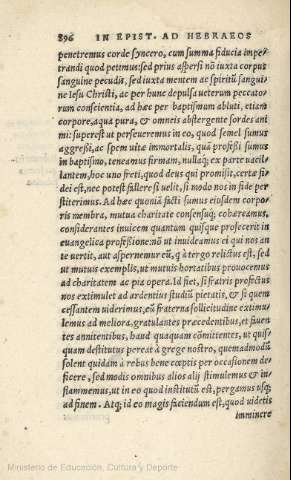 896 IN EPIST. AD HEBRAEOS
penetremus corde syncero, cum summa fiducia impe⸗
trandi quod petimus: sed prius aspersi nō iuxta corpus
sanguine pecudis, sed iuxta mentem ac spiritū sangui⸗
ne Iesu Christi, ac per hunc depulsa ueterum peccato⸗
rum conscientia, ad hæc per baptismum abluti, etiam
corpore, aqua pura, & omneis abstergente sordes ani
mi: superest ut perseueremus in eo, quod semel sumus
aggreßi, ac spem uitæ immortalis, quā profeßi sumus
in baptismo, teneamus firmam, nullaq; ex parte uacil⸗
lantem, hoc uno freti, quod deus qui promisit, certæ fi⸗
dei est, nec potest fallere si uelit, si modo nos in fide per
stiterimus. Ad hæc quoniā facti sumus eiusdem corpo⸗
ris membra, mutua charitate consensuq; cohæreamus,
considerantes inuicem quantum quisque profecerit in
euangelica profeßione: nō ut inuideamus ei qui nos an
te uertit, aut aspernemur eū, q̄ à tergo relictus est, sed
ut mutuis exemplis, ut mutuis hortatibus prouocemus
ad charitatem ac pia opera. Id fiet, si fratris profectus
nos extimulet ad ardentius studiū pietatis, & si quem
cessantem uiderimus, eū fraterna sollicitudine extimu⸗
lemus ad meliora, gratulantes præcedentibus, et fauen
tes annitentibus, haud quaquam cōmittentes, ut quis⸗
quam destitutus pereat à grege nostro, quemadmodū
solent quidam à rebus bene cœptis per occasionem de⸗
ficere, sed modis omnibus alios alij stimulemus & in⸗
flammemus, ut in eo quod institutū est, pergamus usq;
ad finem. Atq; id eo magis faciendum est, quod uidetis
imminere
Ministerio de Educación, Cultura y Deporte